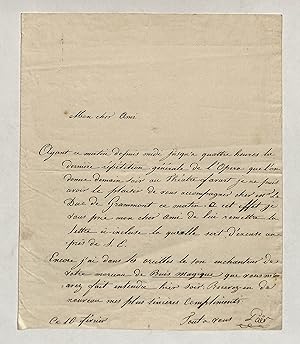 Mon cher Ami
Ayant ce matin depuis midi jusqu'a quattre heures la
derniere répétition générale de l'Opera que l'on
donne demain soir au Théâtre Favart je ne puis
avoir le plaisir de vous accompagner chez Mr le
Duc de Grammont ce matin. A cet effet je
vous prie mon cher Ami de lui remettre la
lettre ci incluse la quelle sert d'excuse au
près de S. E.
Encore j'ai dans les oreilles le son enchanteur de
votre morceau de que vous m'
avez fait entendre hier soir. Recevez en de
nouveau mes plus sinceres complimens
Ce 16 février Tout a vous Paër